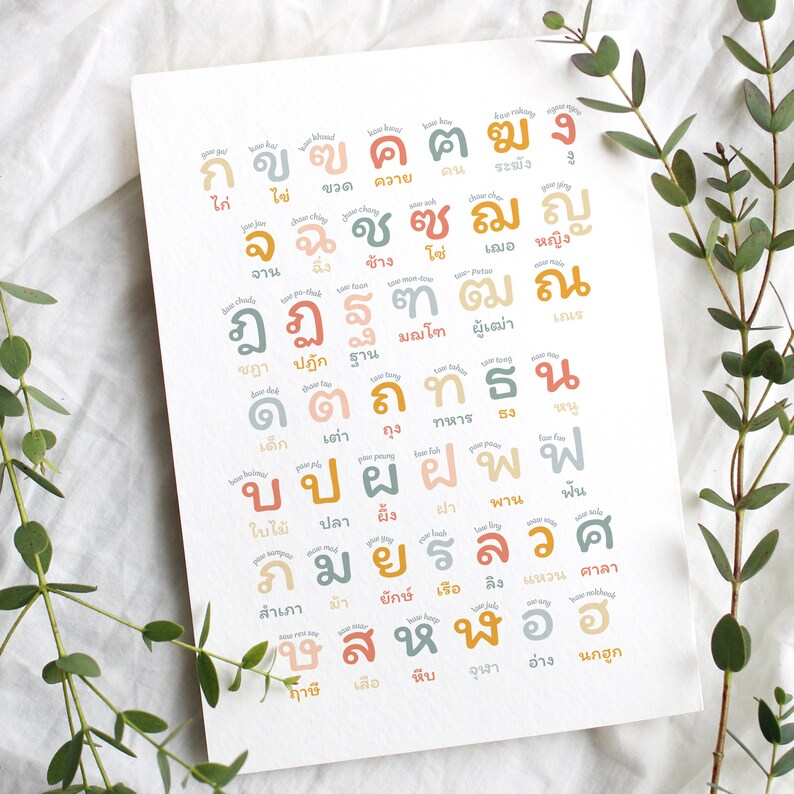 gaw gai kaw kai kaw khuad kaw kwai kaw kon kaw rakang ngaw ngoo
ก ข ฃ ค ฅ ฆ ง
ไก่ ไข่ ขวด ควาย คน ระฆัง งู
jaw jan chaw ching chaw chang saw soh chaw cher yaw ying
จ ฉ ช ซ ฌ ญ
จาน ฉิ่ง ช้าง โซ่ เฌอ หญิง
daw chada taw pa-thak taw taan taw mon-tow taw-putao naw nain
ฎ ฏ ฐ ฑ ฒ ณ
ชฎา ปฏัก ฐาน มณโฑ ผู้เฒ่า เณร
daw dek thaw tao taw tung taw tahan taw tong naw noo
ด ต ถ ท ธ น
เด็ก เต่า ถุง ทหาร ธง หนู
baw baimai paw pla paw peung faw fah paw paan faw fun
บ ป ผ ฝ พ ฟ
ใบไม้ ปลา ผึ้ง ฝา พาน ฟัน
paw sampao maw mah yaw yug raw luah law ling waw wan saw sala
ภ ม ย ร ล ว ศ
สำเภา ม้า ยักษ์ เรือ ลิง แหวน ศาลา
saw reu see saw suar haw heep law jula aw ang haw nokhook
ษ ส ห ฬ อ ฮ
ฤาษี เสือ หีบ จุฬา อ่าง นกฮูก